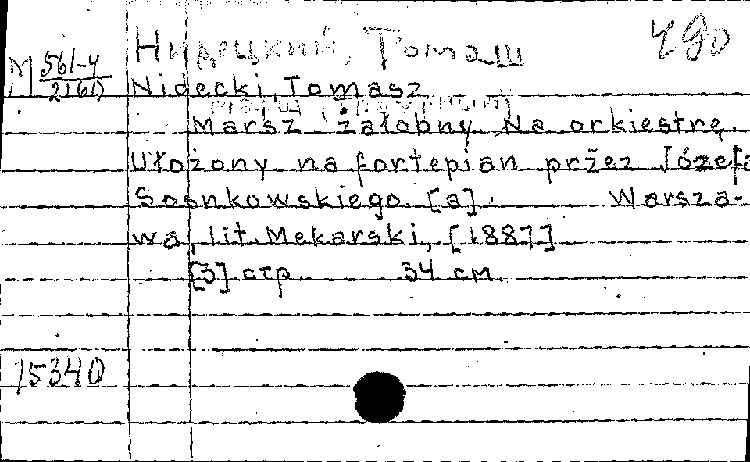 Нидецкий, Томаш
490
М 561-4
2161)
Nidecki, Tomasz
Marsz żałobny. Na orkiestrę
Ułożony na fortepian pržez Józefa
Sosnkowskiego [a]. Warsza-
wa, lit. Mekarski, [1887]
[3] стр. 34 см.
15340